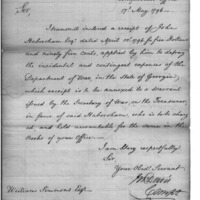 17th May 1796
Sir,
I transmit inclosed a receipt of John
Habersham Esqr dated April 10th 1796 for five Dollars
and ninety five cents, applied by him to defray
the incidental and contingent expences of the
Department of War, in the State of Georgia,
which receipt is to be annexed to a warrant
issued by the Secretary of War, on the Treasurer,
in favor of said Habersham, who is to be charged
and held accountable for the same in the
Books of your Office.
I am Very respectfully
Sir,
Your Obed. Servant
Wm Davis
Compt
William Simmons Esqr